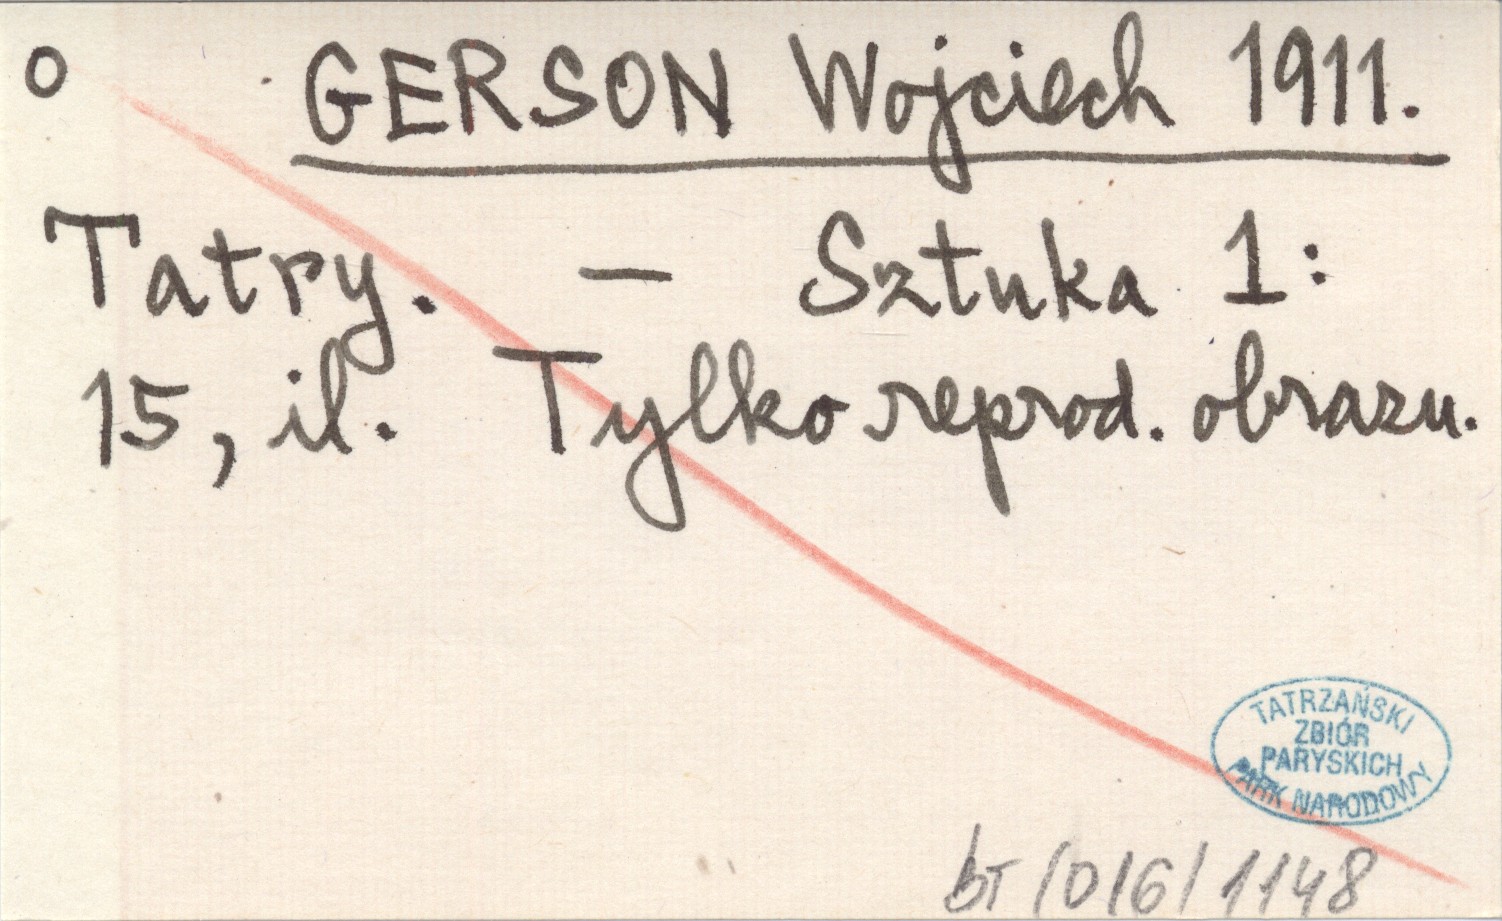 o GERSON Wojciech 1911.
Tatry. — Sztuka 1:
15, il. Tylko reprod. obrazu.
TATRZAŃSKI
ZBIÓR
PARYSKICH
PARK NARODOWY
bT/0/6/1148